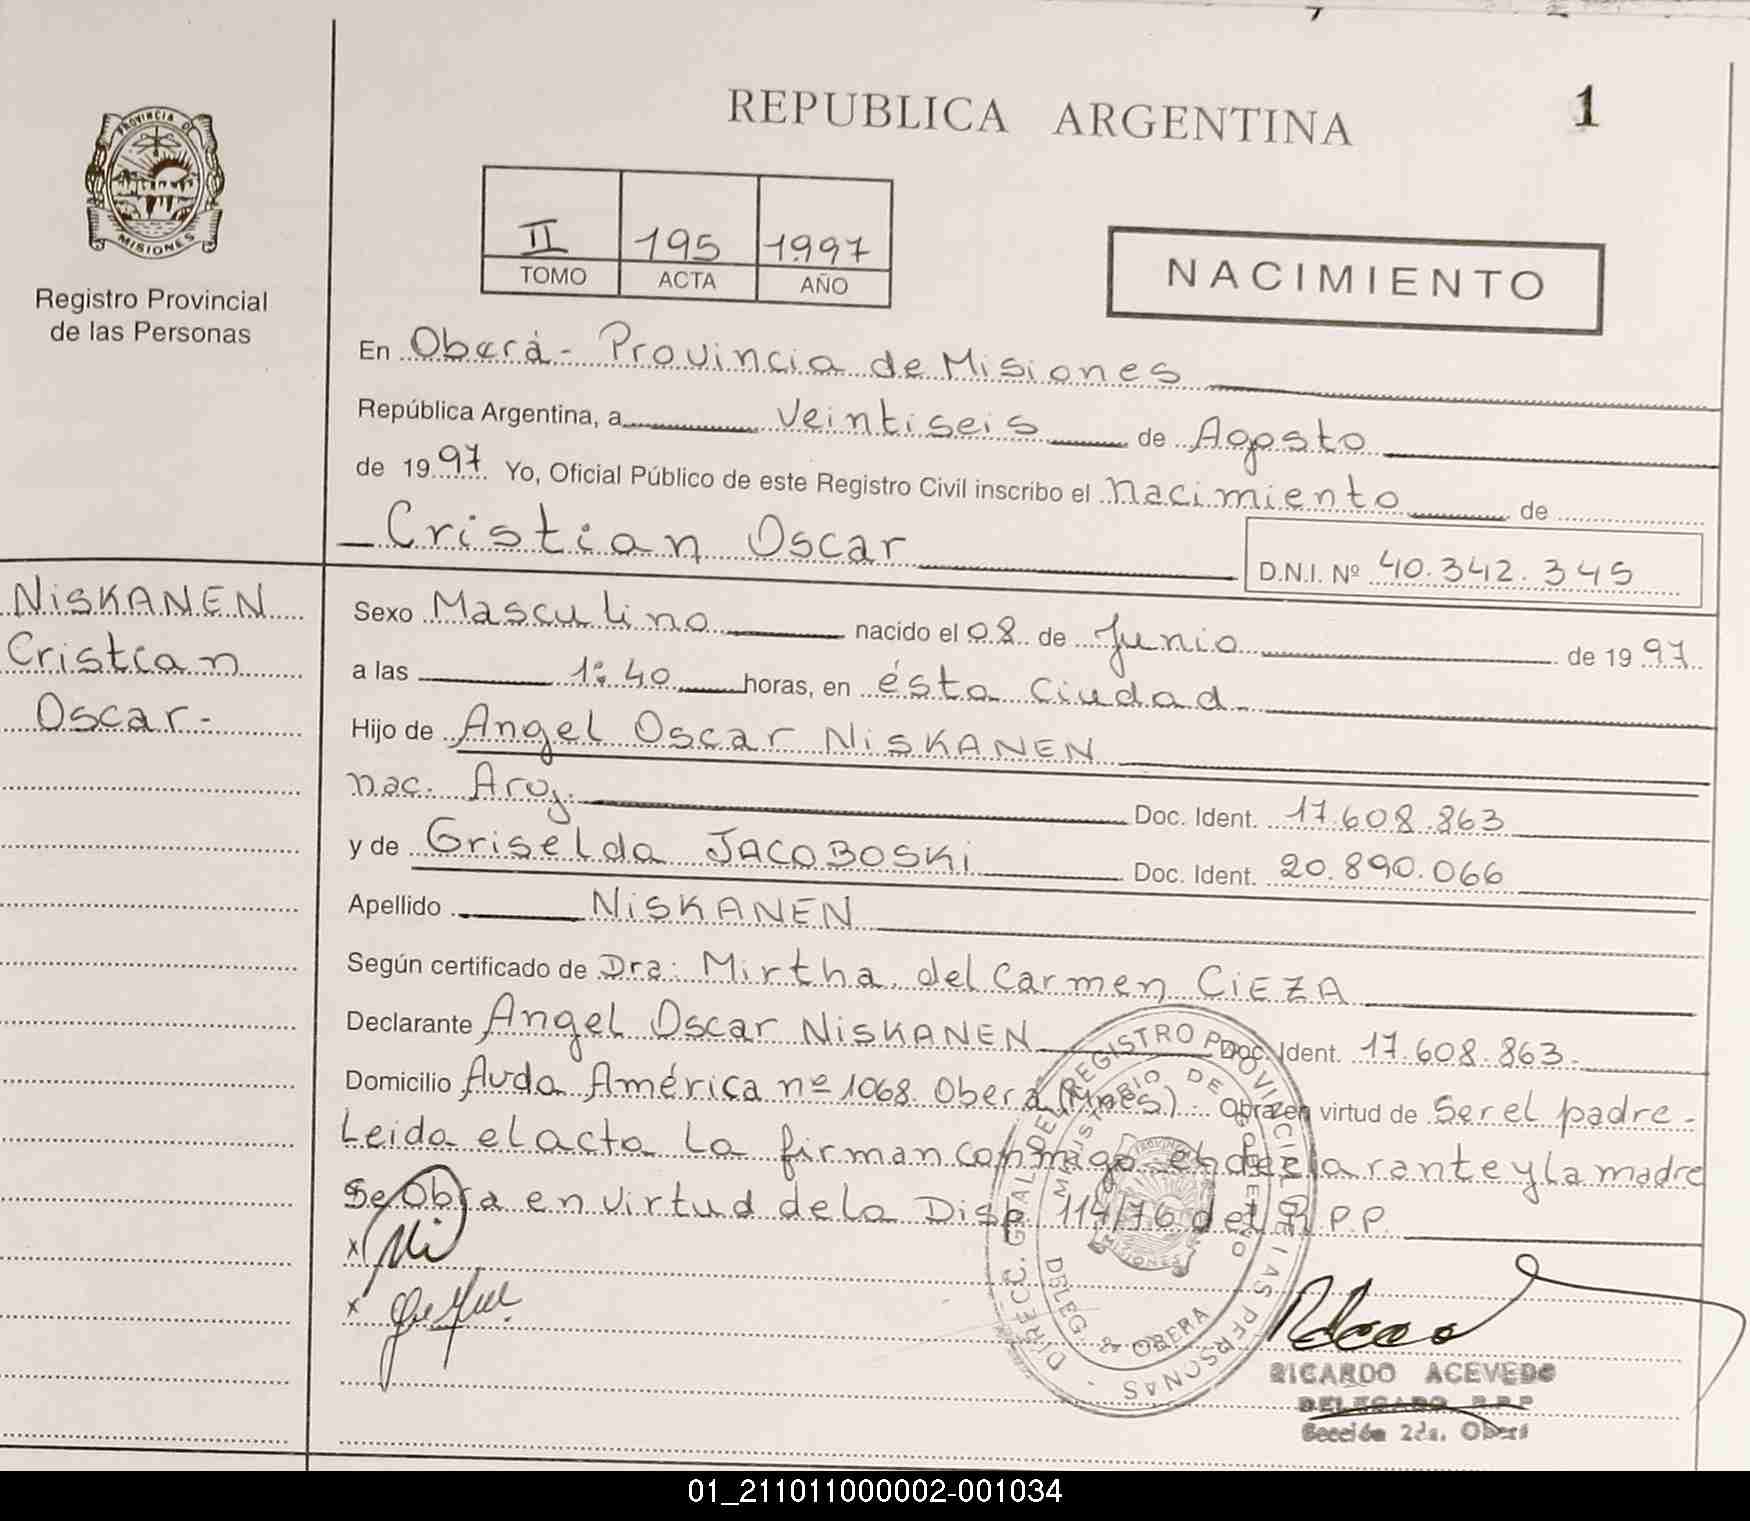 REPUBLICA ARGENTINA
1
PROVINCIA DE
MISIONES
Registro Provincial
de las Personas
II 195 1997
TOMO ACTA AÑO
NACIMIENTO
En Oberá - Provincia de Misiones
República Argentina, a Veintiseis de Agosto
de 1997 Yo, Oficial Público de este Registro Civil inscribo el nacimiento de
Cristian Oscar
D.N.I. Nº 40.342.345
NiSKANEN
Cristian
Oscar-
Sexo Masculino nacido el 08 de Junio de 1997
a las 1:40 horas, en ésta Ciudad.
Hijo de Angel Oscar NiSKANEN
nac. Arg. Doc. Ident. 17.608.863
y de Griselda JACOBOSKi Doc. Ident. 20.890.066
Apellido NiSKANEN
Según certificado de Dra: Mirtha del Carmen CiEZA
Declarante Angel Oscar NiSKANEN Doc. Ident. 17.608.863.
Domicilio Avda América nº 1068. Oberá (Mnes). Obra en virtud de Ser el padre-
Leida el acta la firman conmigo el declarante y la madre
Se Obra en virtud de la Disp. 114/76 del R.P.P.
x
x
DIRECC. GRAL DEL REGISTRO PROVINCIAL DE LAS PERSONAS
MINISTERIO DE GOBIERNO
PROVINCIA
MISIONES
DELEG. & OBERA
RICARDO ACEVEDO
DELEGADO R.P.P
Sección 2da. Oberá
01_211011000002-001034